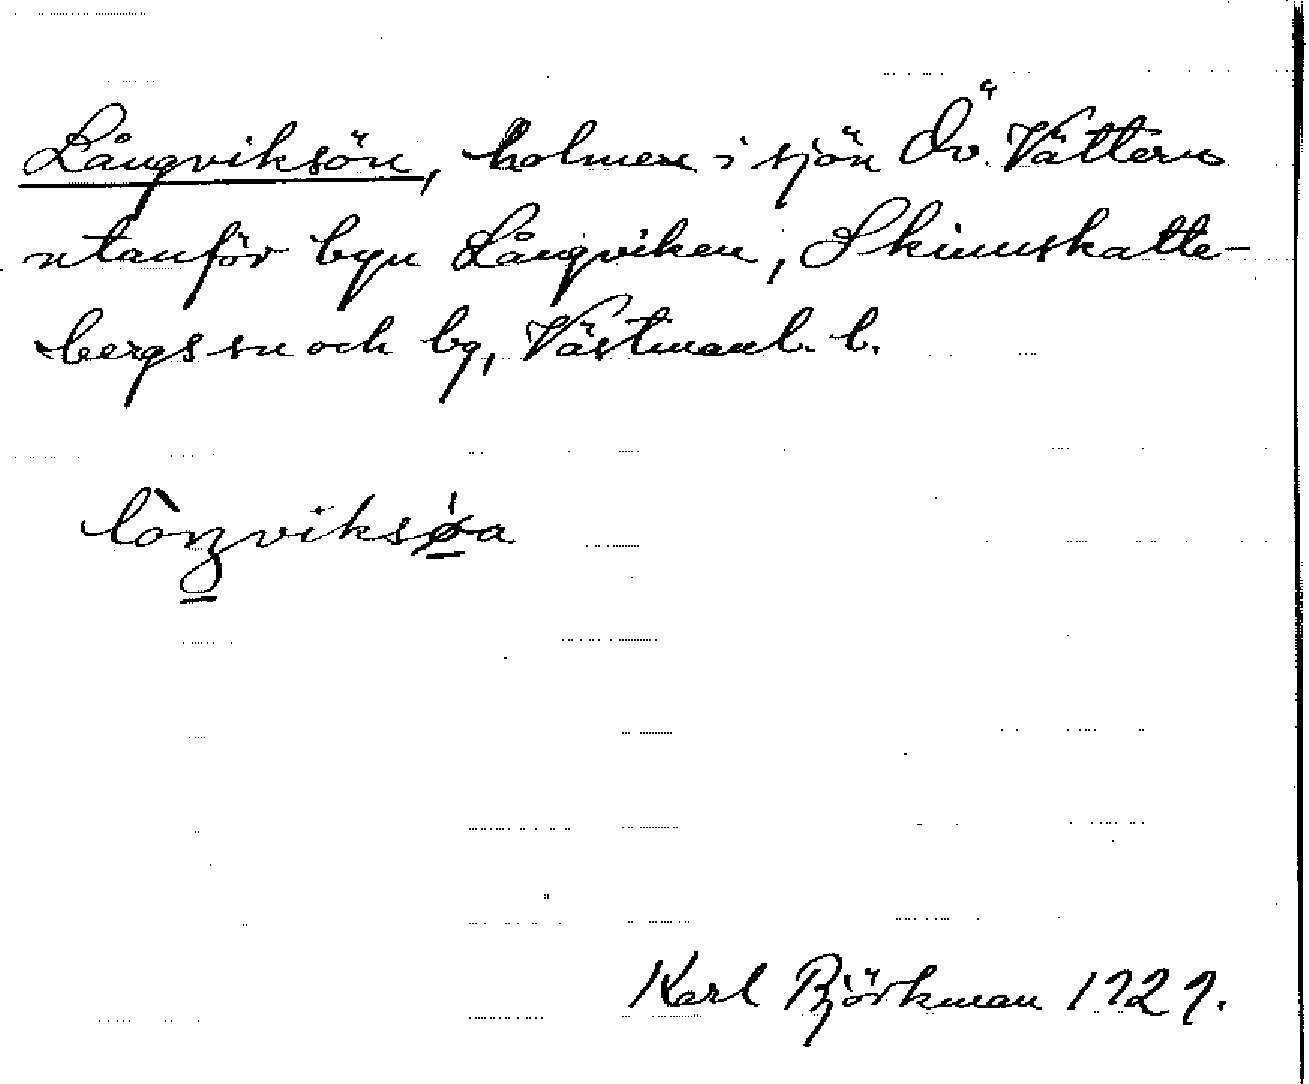 Långviksön, holmen i sjön Öv. Vättern
utanför byn Långviken, Skinnskatte-
bergs sn och bg, Västmanl. l.
Karl Björkman 1929.